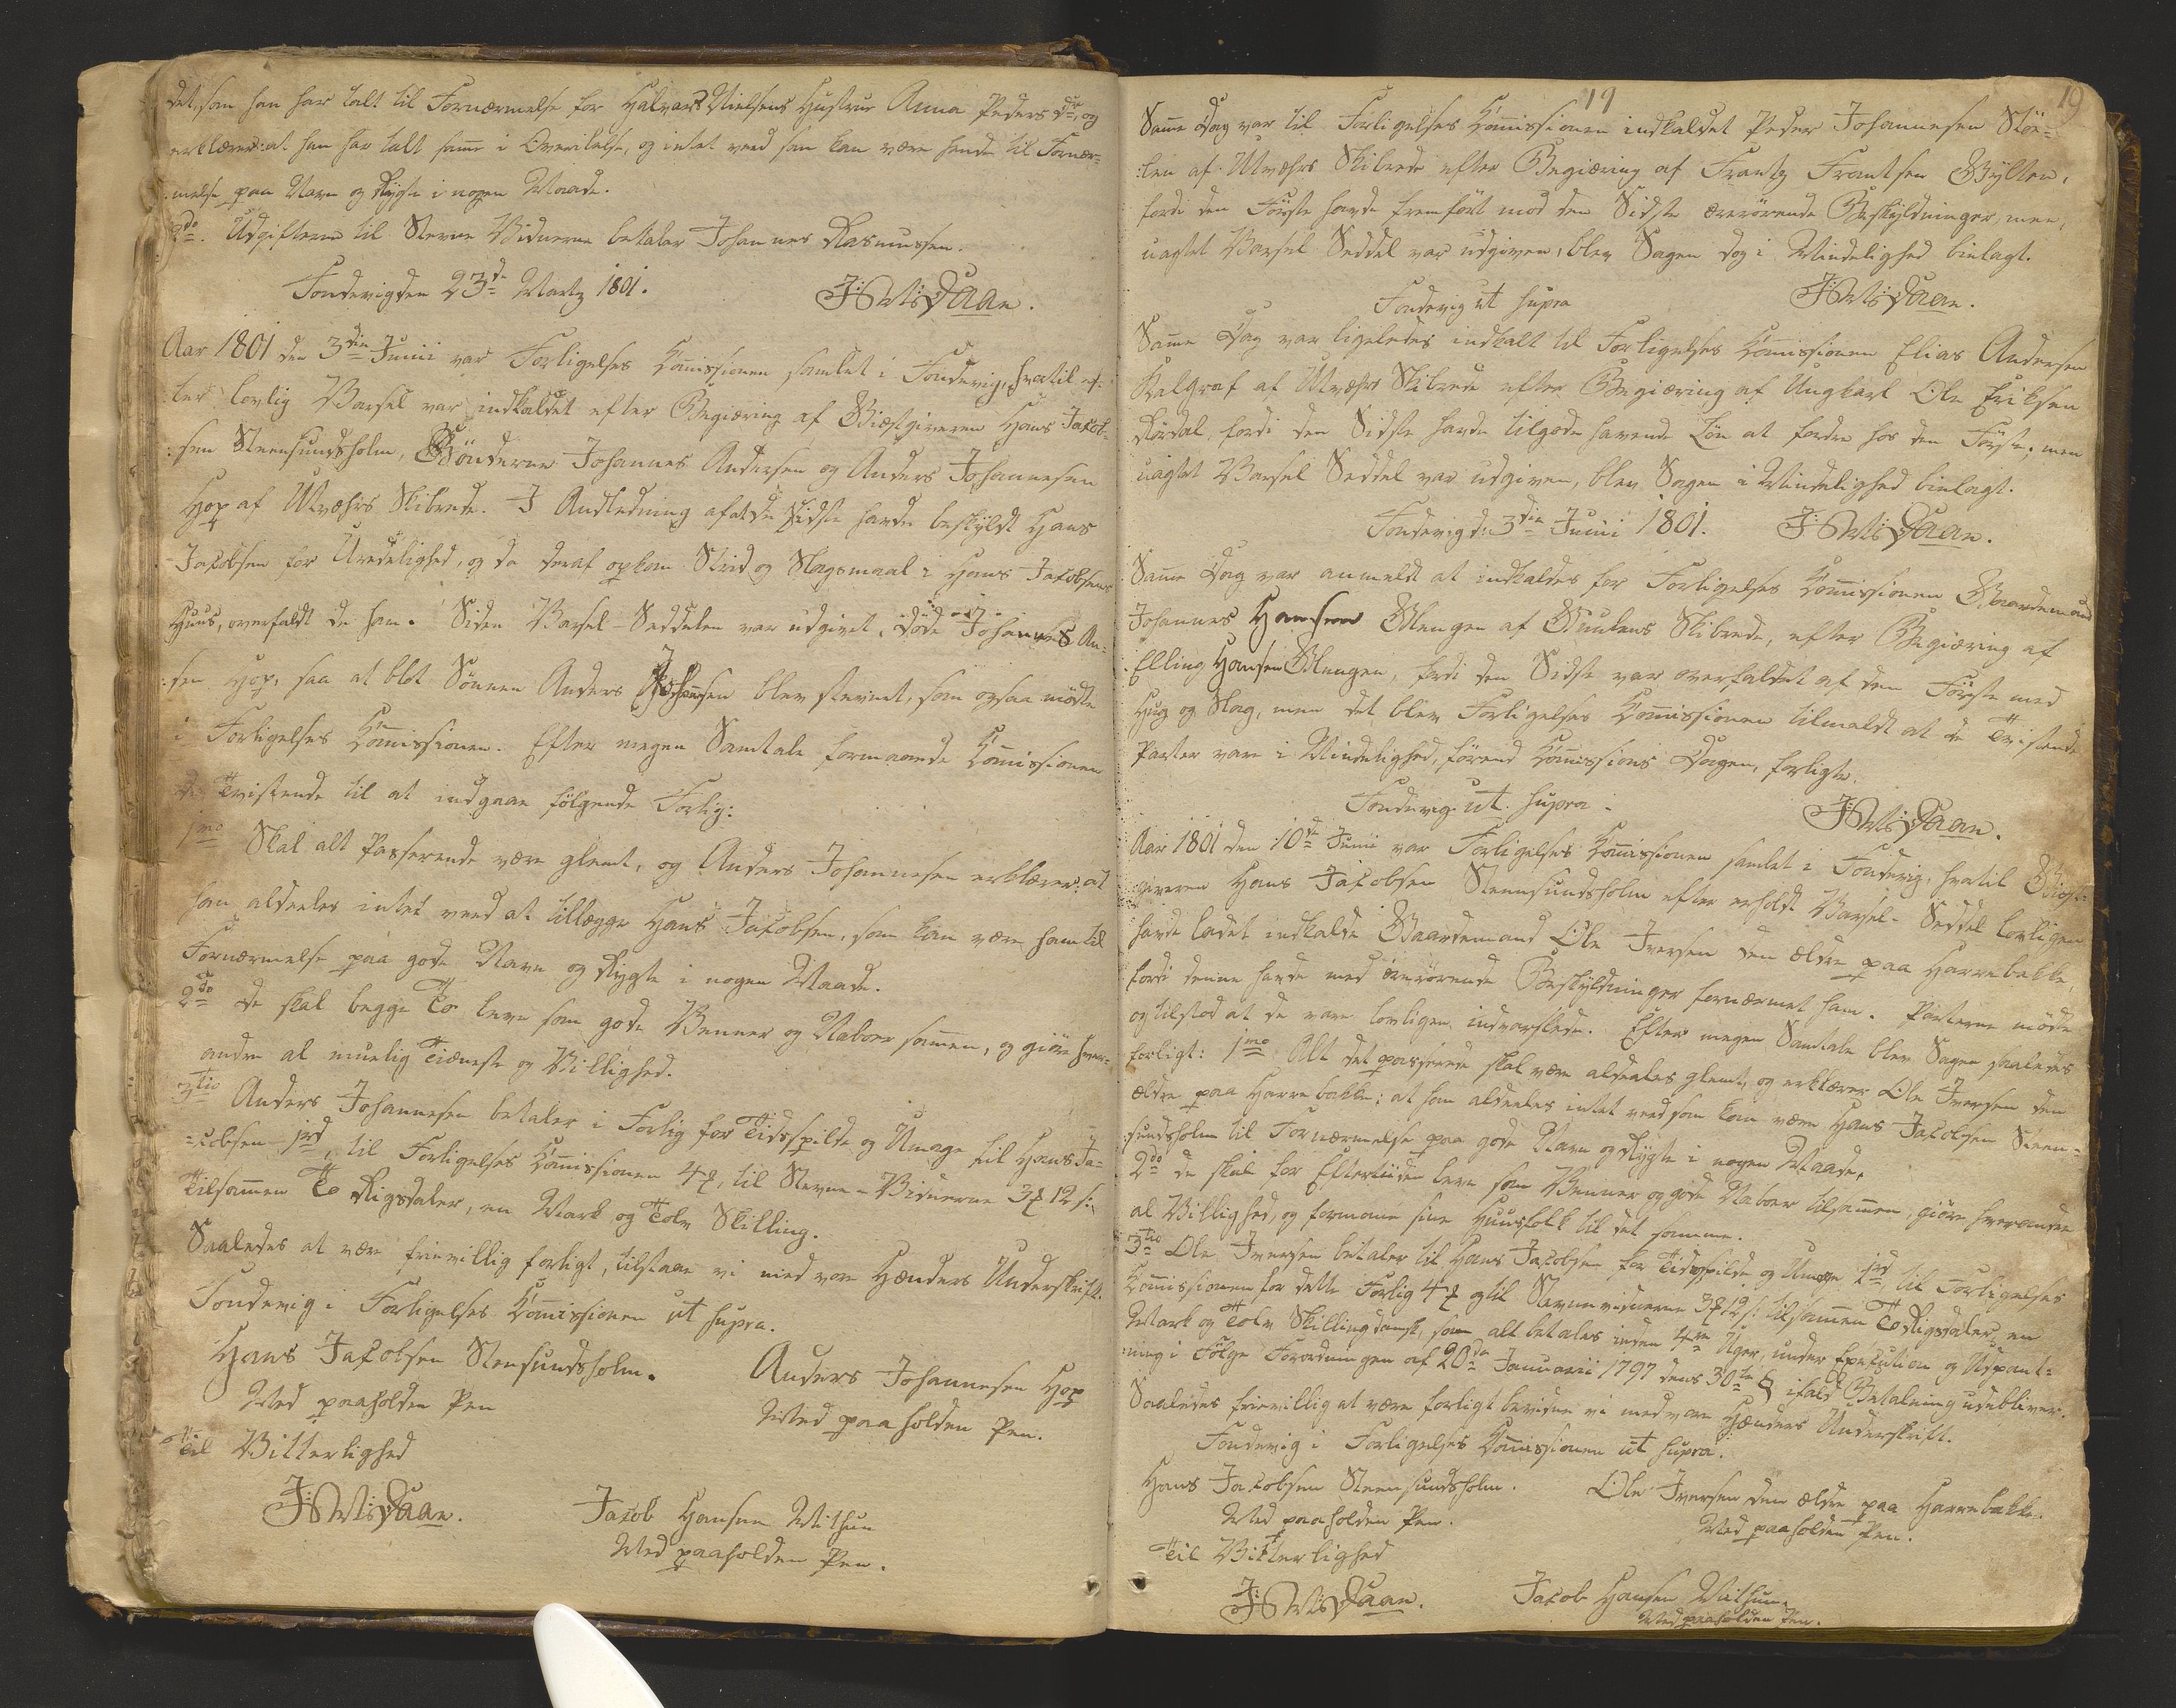 det, som han har talt til Fornærmelse for Halvars Nielsens Hustrue Anna Peders dr, og
erklærer: at han har talt samme i Overilelse, og intet veed som kan være hende til Fornær-
melse paa Navn og Rygte i nogen Maade.
2do. Udgifterne til Stevne Vidnerne betaler Johannes Rasmussen.
Sondevig den 23de Martz 1801.
J: Daae.
Aar 1801 den 3die Junii var Forligelses Commissionen samlet i Sondevig, hvortil ef-
ter lovlig Varsel var indkaldet efter Begiæring af Giæstgiveren Hans Jacob-
:sen Steensundsholm, Bönderne Johannes Andersen og Anders Johannesen
Hop af Utvæhrs Skibrede. I Anledning af at de sidste havde beskyldt Hans
Jacobsen for Uredelighed, og da deraf opkom Strid og Slagsmaal i Hans Jacobsens
Huus, overfaldt de ham. Siden Varsel-Seddelen var udgivet, döde Johannes An-
:sen Hop, saa at blot Sönnen Anders Johansen blev stevnet, som ogsaa mödte
i Forligelses Commissionen. Efter megen Samtale formaaede Commissionen
de Tvistende til at indgaae fölgende Forlig:
1mo Skal alt Passerende være glemt, og Anders Johannesen erklærer: at
han aldeeles intet veed at tillægge Hans Jacobsen, som kan være ham til
Fornærmelse paa gode Navn og Rygte i nogen Maade.
2do de skal begge To leve som gode Venner og Naboer sammen, og giöre hver-
andre al muelig Tieneste og Villighed.
3tio Anders Johannesen betaler i Forlig for Tidsspilde og Umage til Hans Ja-
=cobsen 1rd, til Forligelses Commissionen 4 ₰, til Stevne-Vidnerne 3 ₰ 12 s:,
Tilsammen To Rigsdaler, en Mark og Tolv Skilling.
Saaledes at være frievillig forligt, tilstaae vi med vore Hænders Underskrift.
Sondevig i Forligelses Commissionen ut supra.
Hans Jacobsen Stensundsholm. Anders Johannesen Hop
Med paaholden Pen Med paaholden Pen.
Til Vitterlighed
J: Daae. Jacob Hansen Mithun
Med paaholden Pen.
19 19
Samme Dag var til Forligelses Commissionen indkaldet Peder Johannesen Stöe-
:len af Utvæhrs Skibrede efter Begiæring af Frantz Frantsen Bylten,
fordi den Förste havde fremfört mod den Sidste ærerörende Beskyldninger, men,
uagtet Varsel Seddel var udgiven, blev Sagen dog i Mindelighed bielagt.
Sondevig ut supra J: Daae.
Samme Dag var ligeledes indkalt til Forligelses Commissionen Elias Andersen
Kalgraf af Utvæhrs Skibrede efter Begiæring af Ungkarl Ole Eriksen
Rördal, fordi den Sidste havde tilgode havende Lön at fordre hos den Förste; men
uagtet Varsel Seddel var udgiven, blev Sagen i Mindelighed bielagt.
Sondevig d: 3die Junii 1801. J: Daae.
Samme Dag var anmeldt at indkaldes for Forligelses Commissionen Gaardemand
Johannes Hansen Mengen af Gulens Skibrede, efter Begiæring af
Elling Hansen Mengen, fordi den Sidste var overfaldet af den Förste med
Hug og Slag, men det blev Forligelses Commissionen tilmeldt at de Tvistende
Parter vare i Mindelighed, förend Commissions Dagen, forligte.
Sondevig ut supra. J: Daae.
Aar 1801 den 10de Junii var Forligelses Commissionen samlet i Sondevig, hvortil Giæst-
:giveren Hans Jacobsen Steensundsholm efter erholdt Varsel-Seddel lovligen
havde ladet indkalde Gaardemand Ole Iversen den ældre paa Harrebakke,
fordi denne havde med ærerörende Beskyldninger fornærmet ham. Parterne möde
og tilstod at de vare lovligen indvarslede. Efter megen Samtale blev Sagen saaledes
forligt: 1mo Alt det passerede skal være aldeeles glemt, og erklærer Ole Iversen den
ældre paa Harrebakke: at han aldeeles intet veed som kan være Hans Jacobsen Steen-
:sundsholm til Fornærmelse paa gode Navn og Rygte i nogen Maade.
2do de skal for Eftertiden leve som Venner og gode Naboer tilsammen, giöre hverandre
al Villighed, og formane sine Huusfolk til det samme.
3tio Ole Iversen betaler til Hans Jacobsen for Tidsspilde og Umage 1rd til Forligelses
Commissionen for dette Forlig 4 ₰ og til Stevnevidnerne 3 ₰ 12 s: tilsammen To Rigsdaler, en
Mark og Tolv Skilling dansk, som alt betales inden 4re Uger, under Execution og Udpant-
:ning i Fölge Forordningen af 20de Januarii 1797 dens 30te § ifald Betalning udebliver.
Saaledes frievillig at være forligt bevidne vi med vore Hænders Underskrift.
Sondevig i Forligelses Commissionen ut supra.
Hans Jacobsen Steensundsholm. Ole Iversen den ældre paa Harrebakke.
Med paaholden Pen. Med paaholden Pen.
Til Vitterlighed
J: Daae. Jacob Hansen Mithun.
Med paaholden Pen.